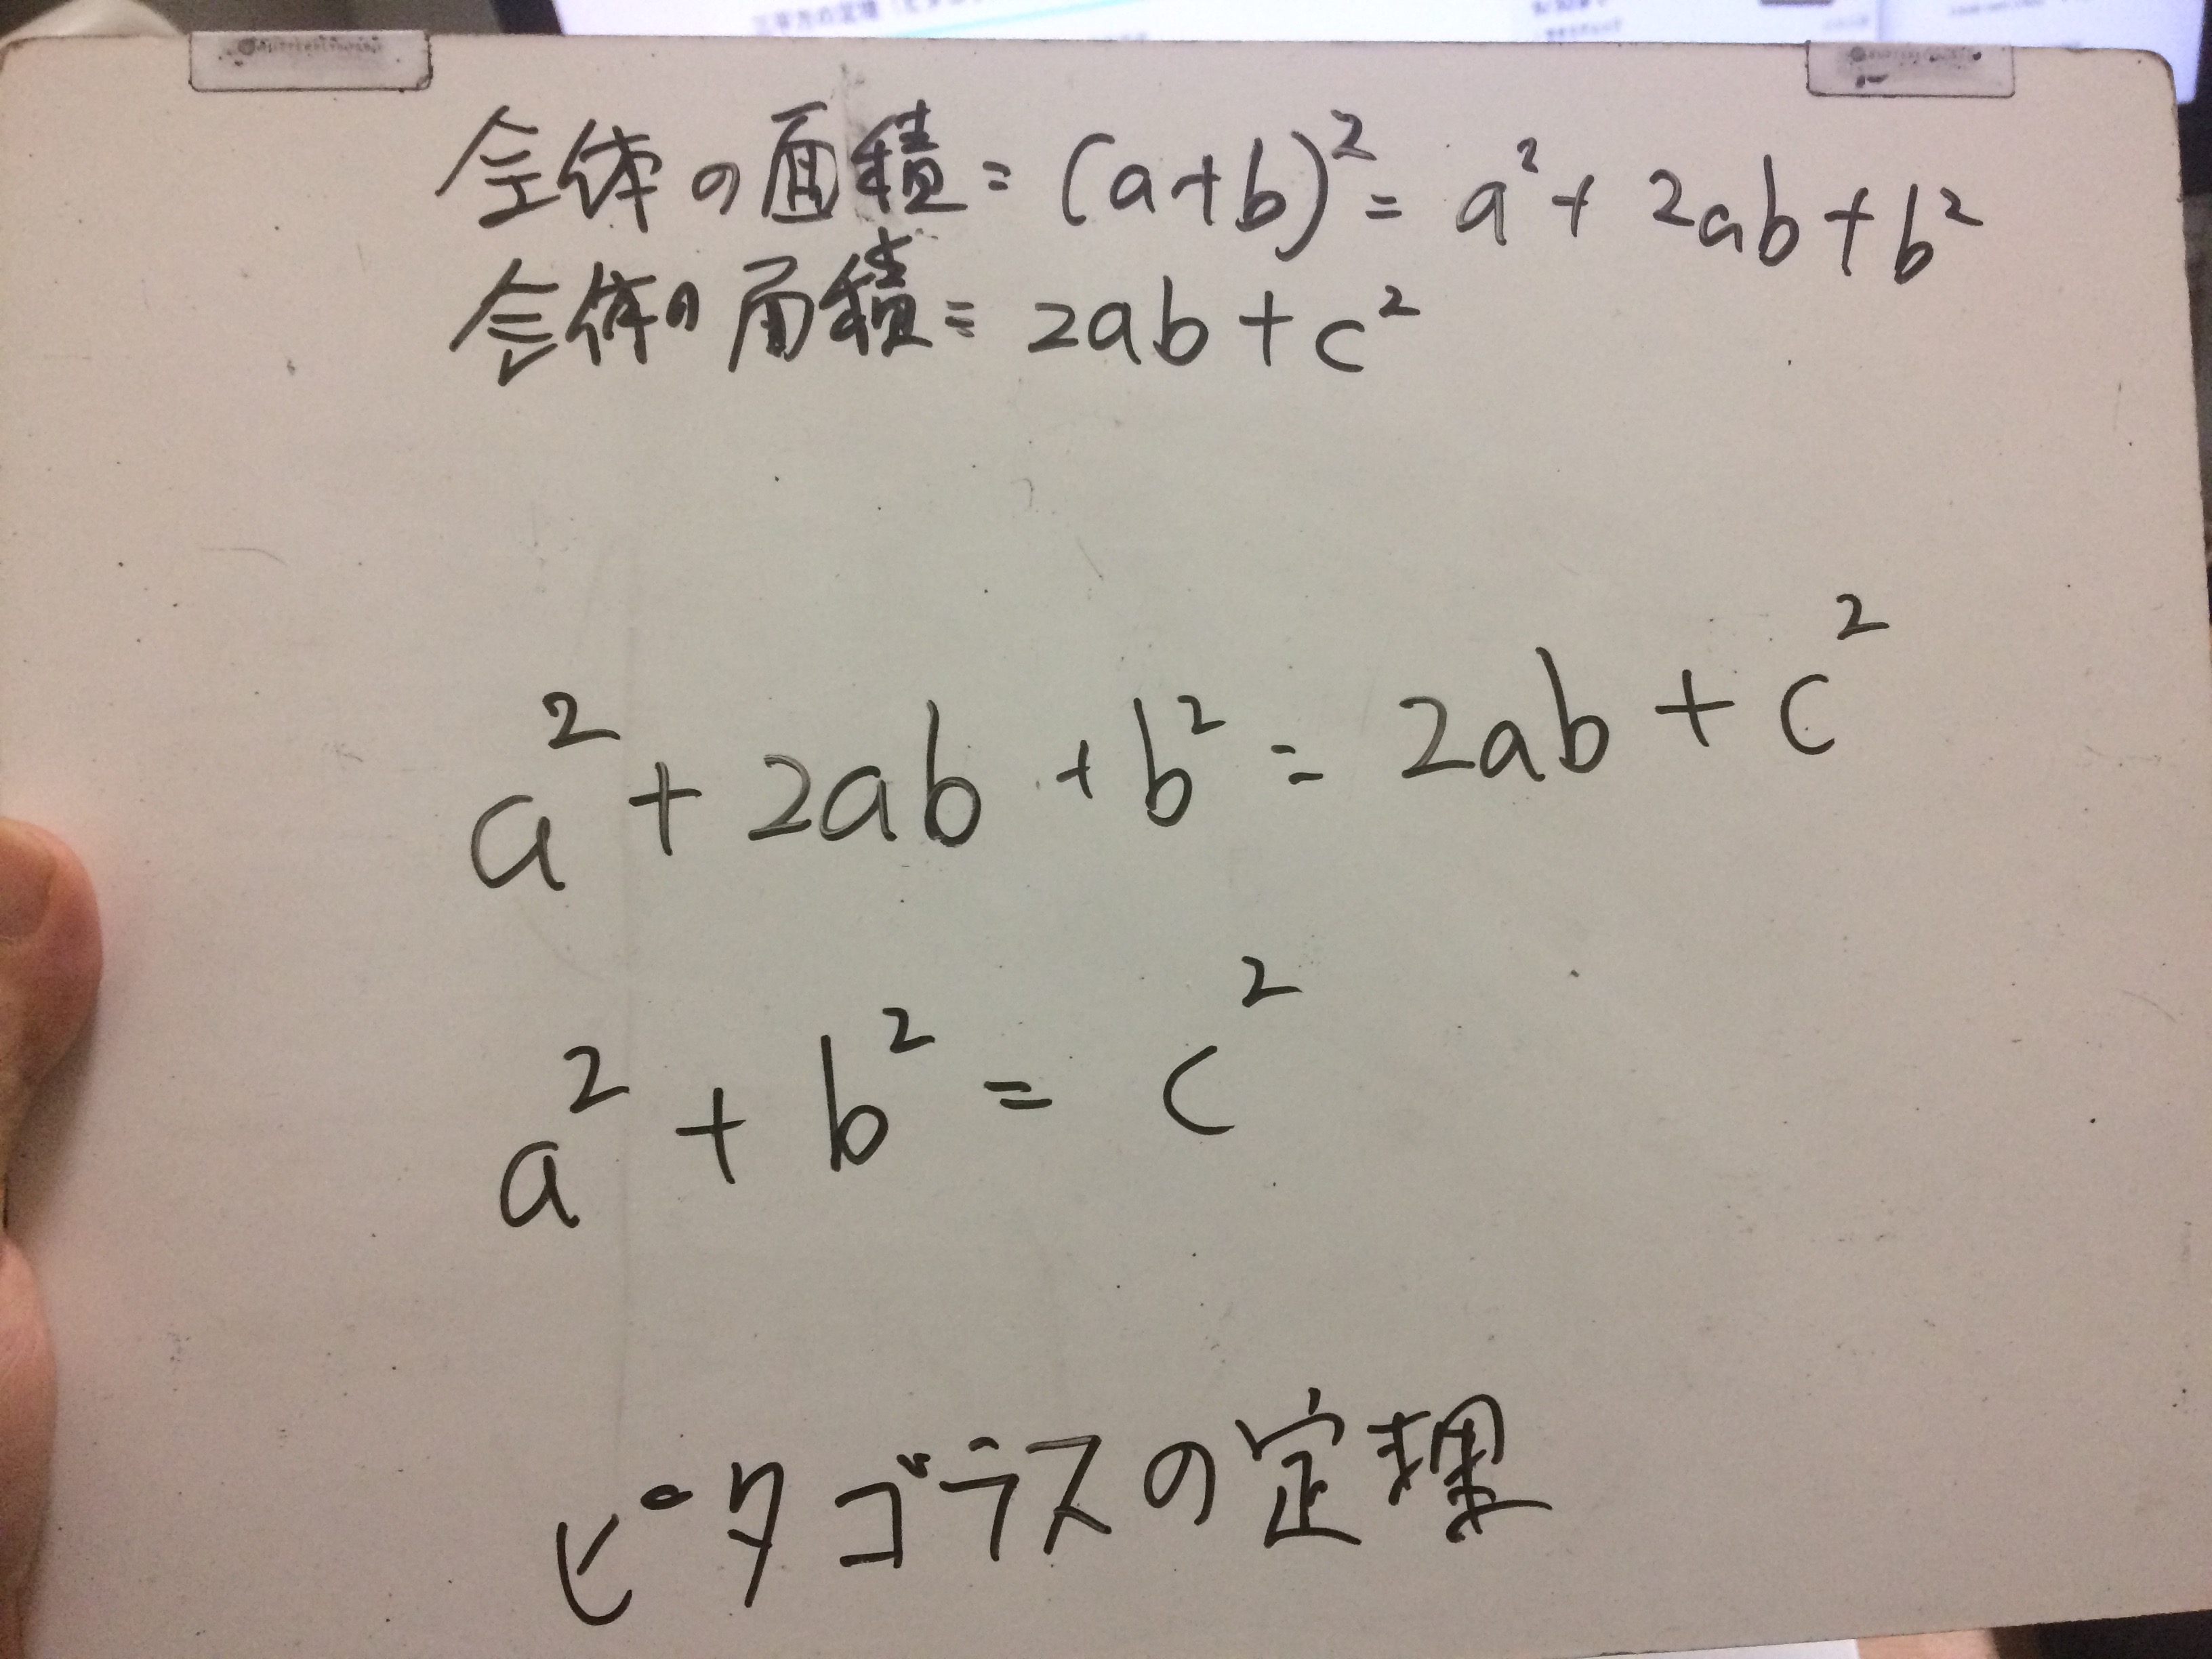 全体の面積 = (a+b)² = a² + 2ab + b²
全体の面積 = 2ab + c²
a² + 2ab + b² = 2ab + c²
a² + b² = c²
ピタゴラスの定理